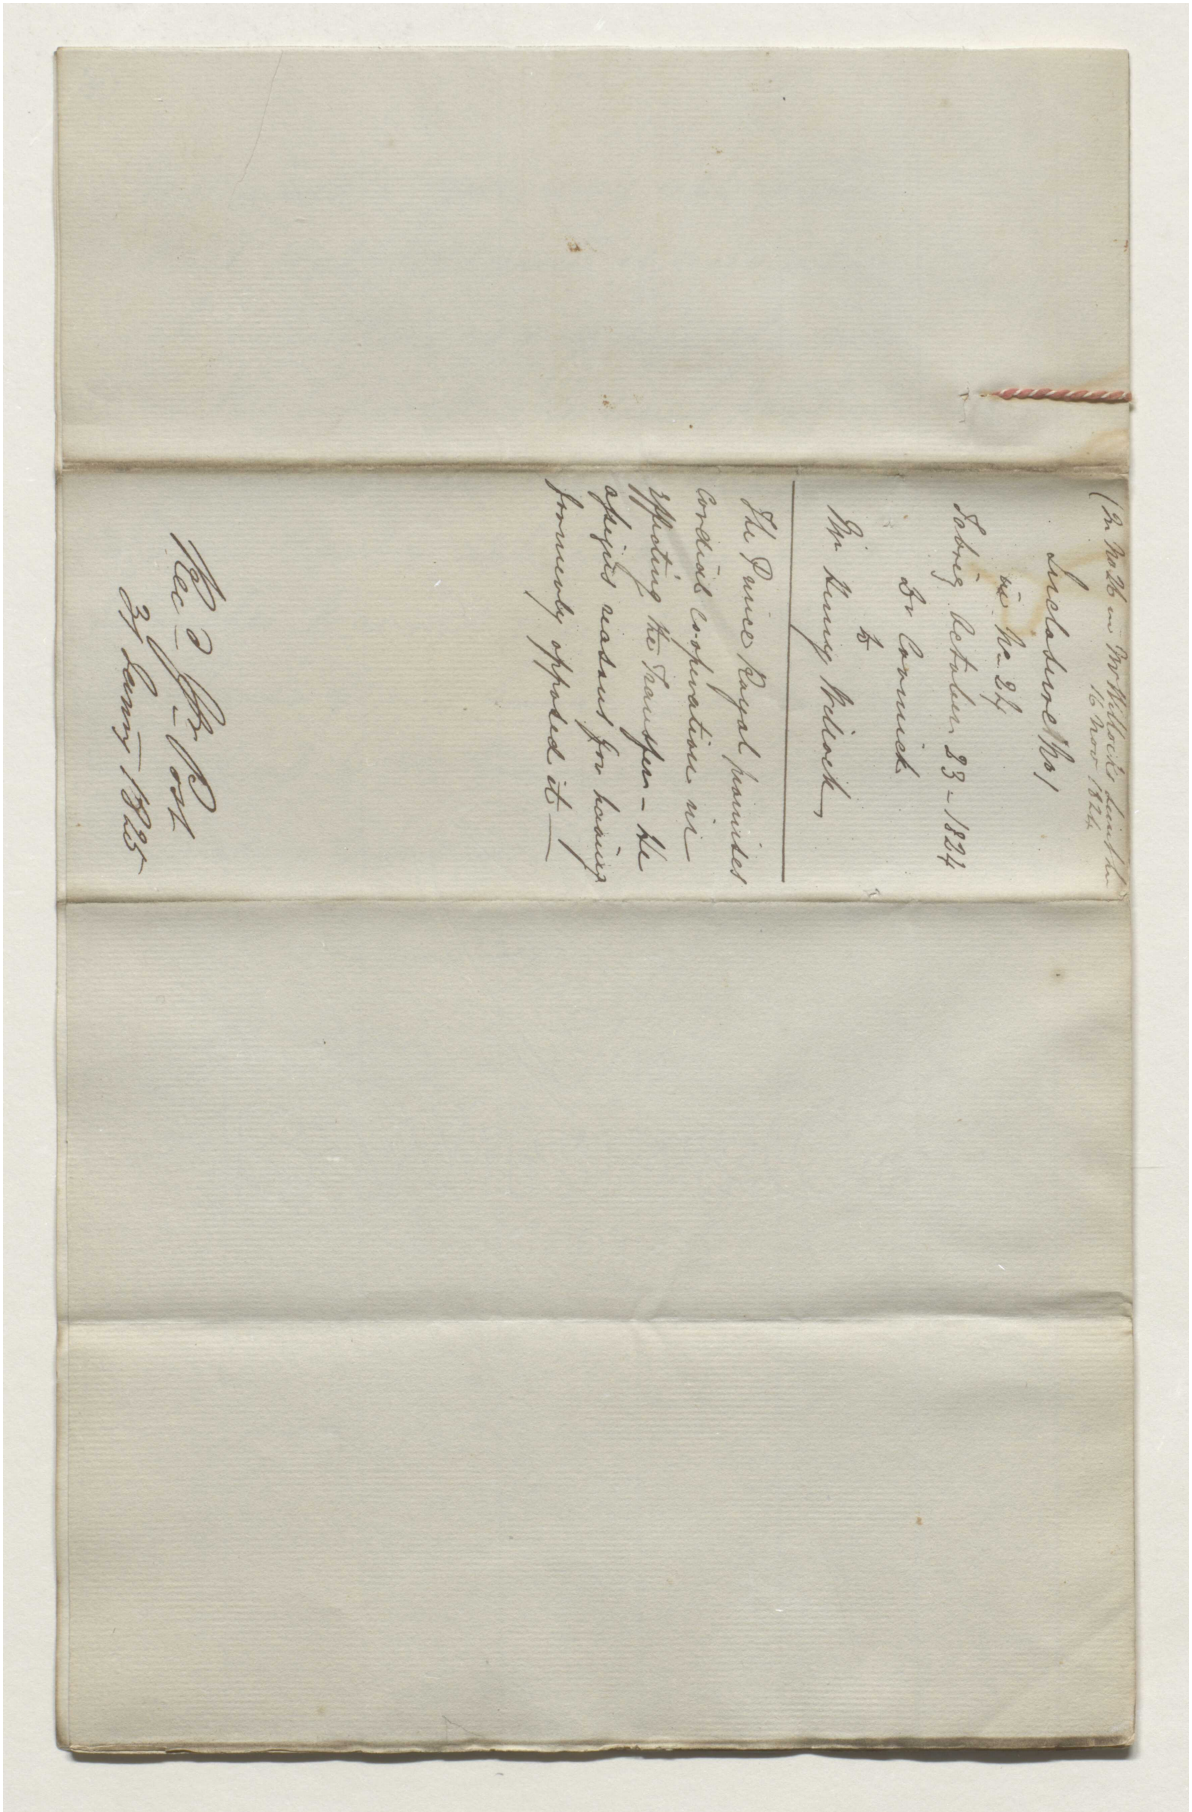 (In No 26 in Mr Willock's
16 Nov 1824
Inclosure No 1
in No. 27
Tabriz October 23 - 1824
Dr Cormick
to
Sir Henry Willock,
The Prince Royal promises
cordial cooperation in
effecting the Transfer - He
assigns reasons for having
formerly opposed it —
Rec_d Pr_ Post
31 Jany — 1825